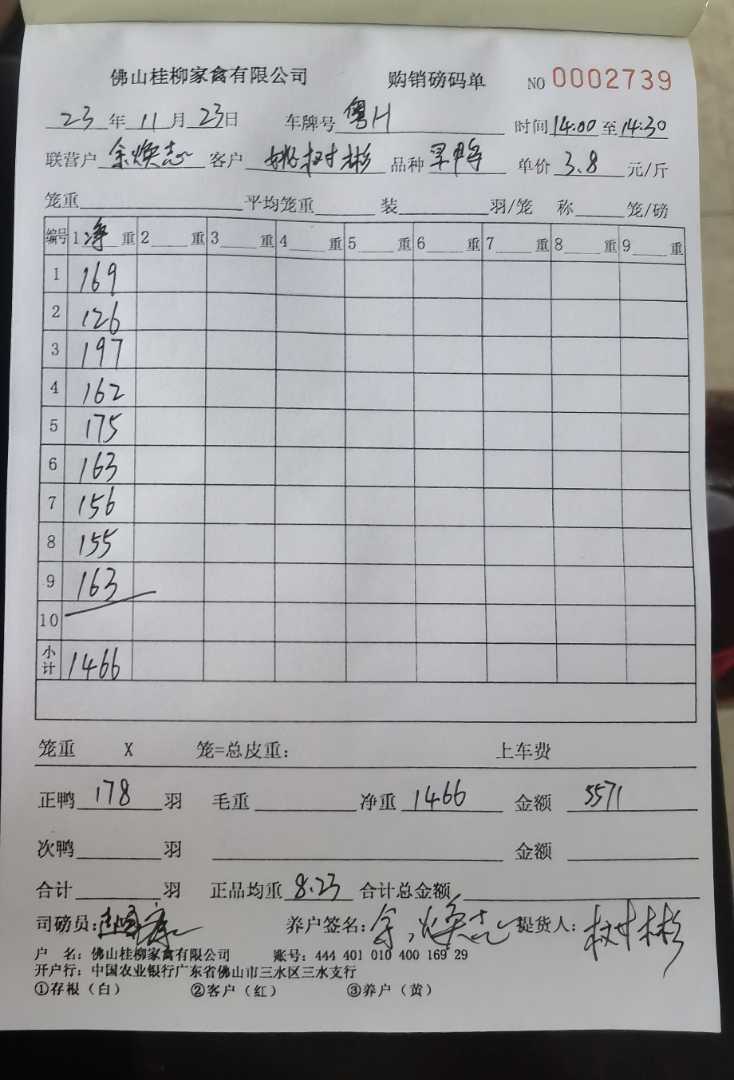 佛山桂柳家禽有限公司 购销磅码单 NO 0002739
23年 11月 23日 车牌号 粤H 时间 14:00 至 14:30
联营户 余焕志 客户 姚树彬 品种 单价 3.8 元/斤
笼重 平均笼重 装 羽/笼 称 笼/磅
编号 1 净 重 2 重 3 重 4 重 5 重 6 重 7 重 8 重 9 重
1 169
2 126
3 197
4 162
5 175
6 163
7 156
8 155
9 163
10
小计 1466
笼重 X 笼=总皮重: 上车费
正鸭 178 羽 毛重 净重 1466 金额 5571
次鸭 羽 金额
合计 羽 正品均重 8.23 合计总金额
司磅员: 养户签名: 余焕志 提货人: 树彬
户 名: 佛山桂柳家禽有限公司 账号: 444 401 010 400 169 29
开户行: 中国农业银行广东省佛山市三水区三水支行
①存根（白） ②客户（红） ③养户（黄）